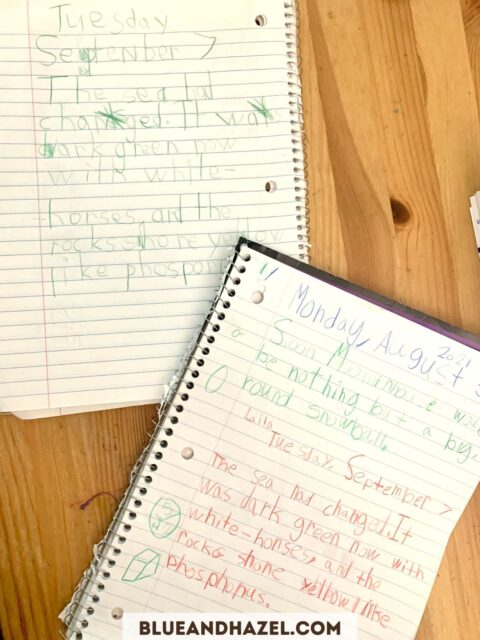 Tuesday
September 7
The sea had
changed. It was
dark green now
with white-
horses, and the
rocks shone yellow
like phosphorus
Monday, August
2021
Soon Moominhouse would
be nothing but a big
round snowball.
Laila
Tuesday, September 7
The sea had changed. It
was dark green now with
white-horses, and the
rocks shone yellow like
phosphopus.
BLUEANDHAZEL.COM